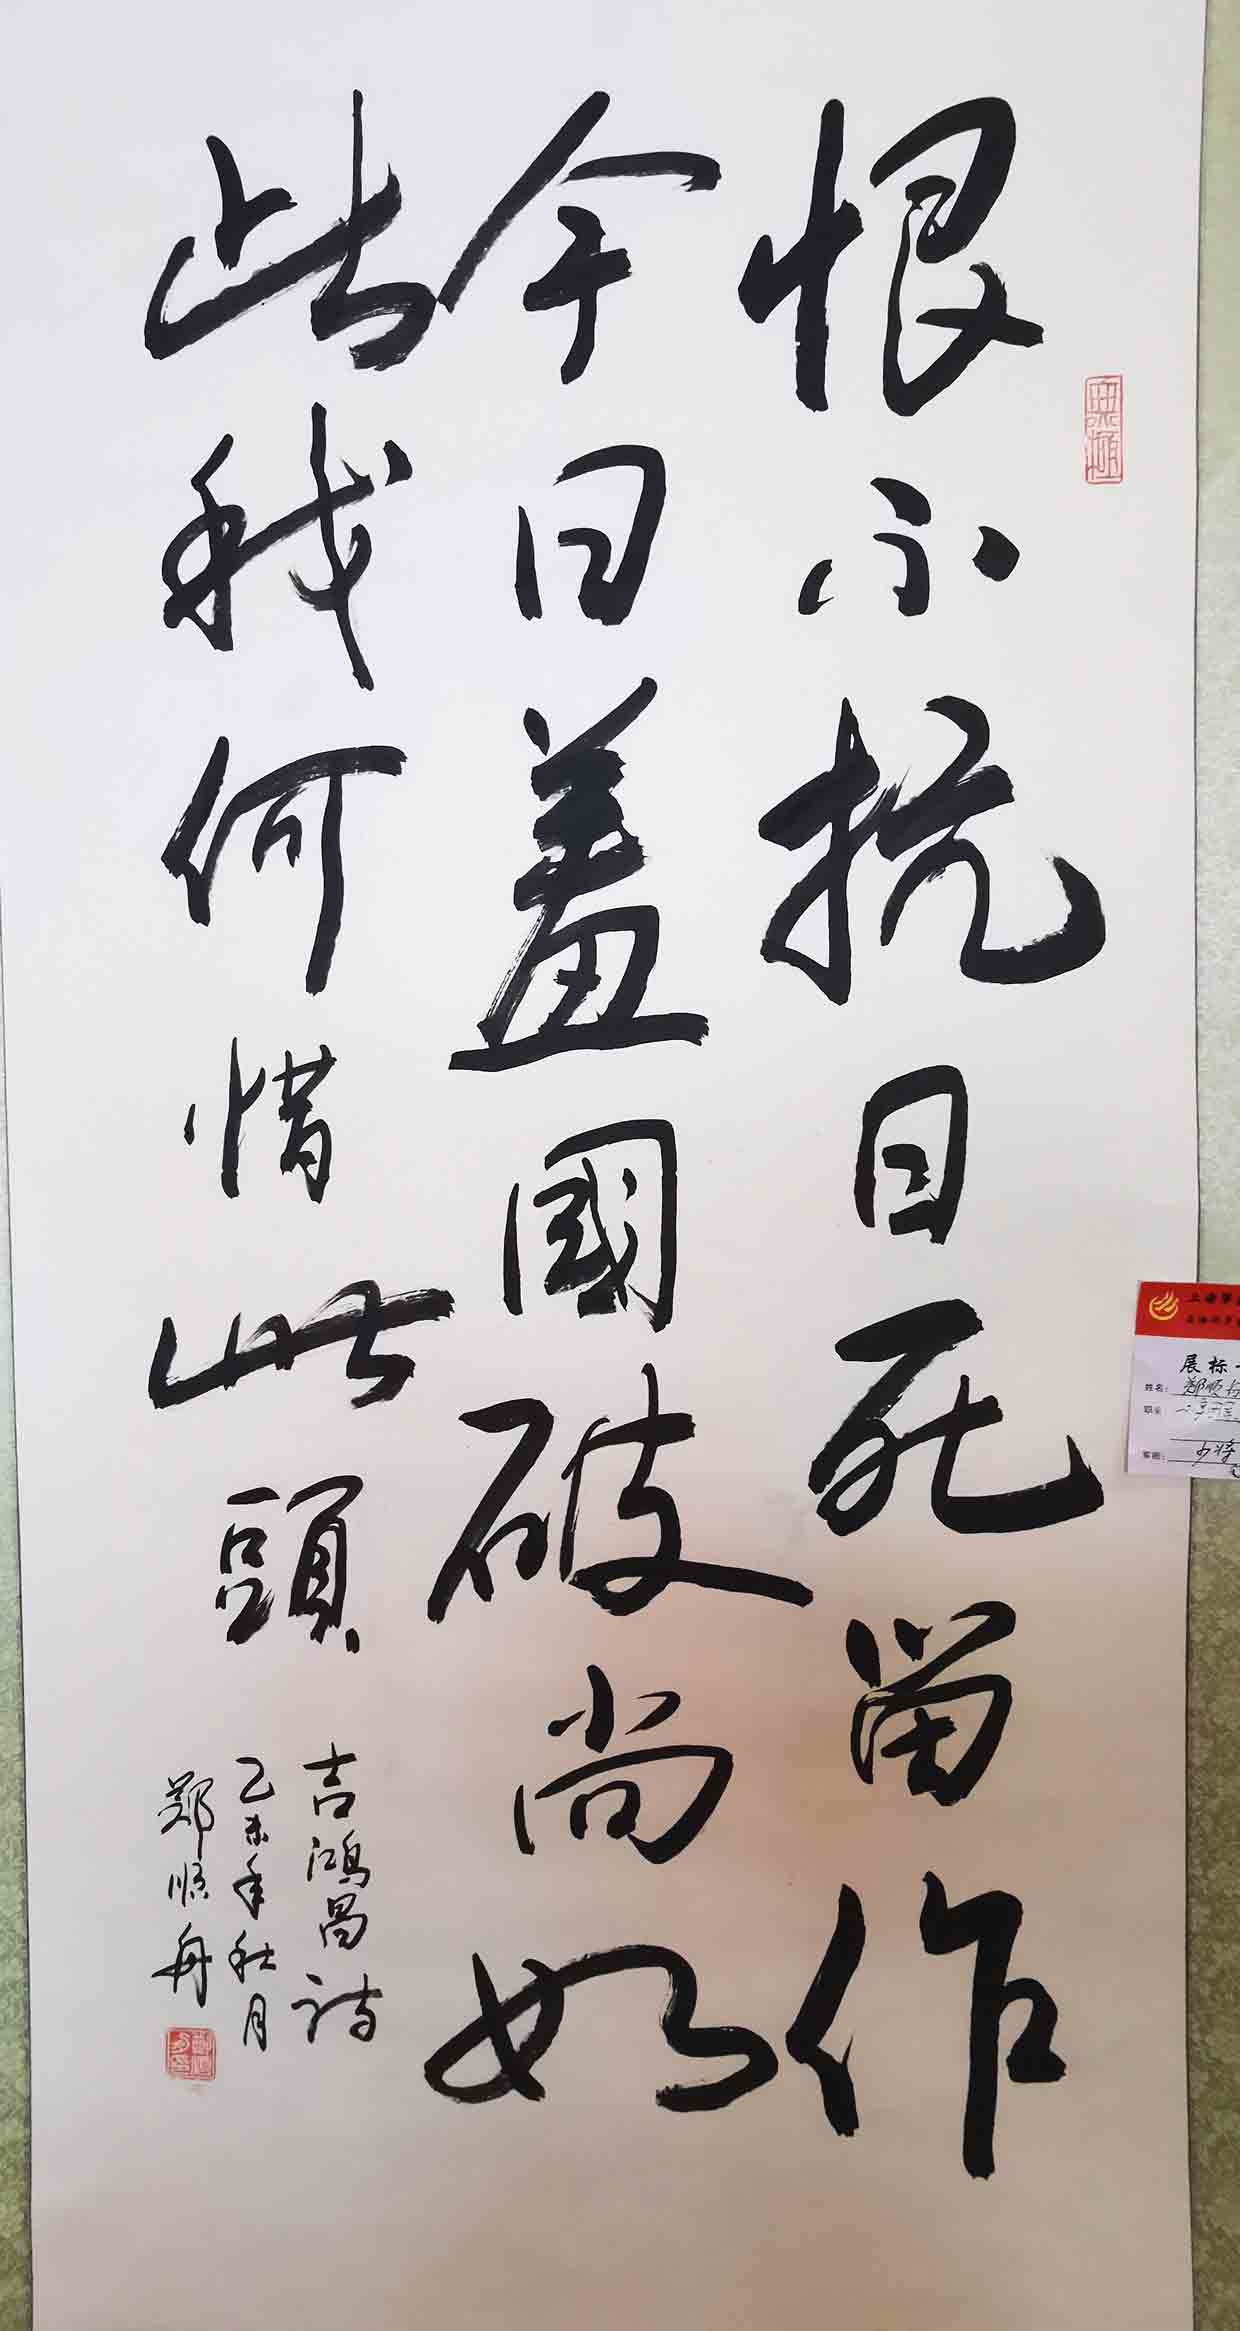 恨不抗日死留作
今日羞國破尚如
此我何惜此頭
吉鴻昌詩
乙未年秋月
鄭順舟
無極
展标
姓名：郑顺
职业
军衔：少将